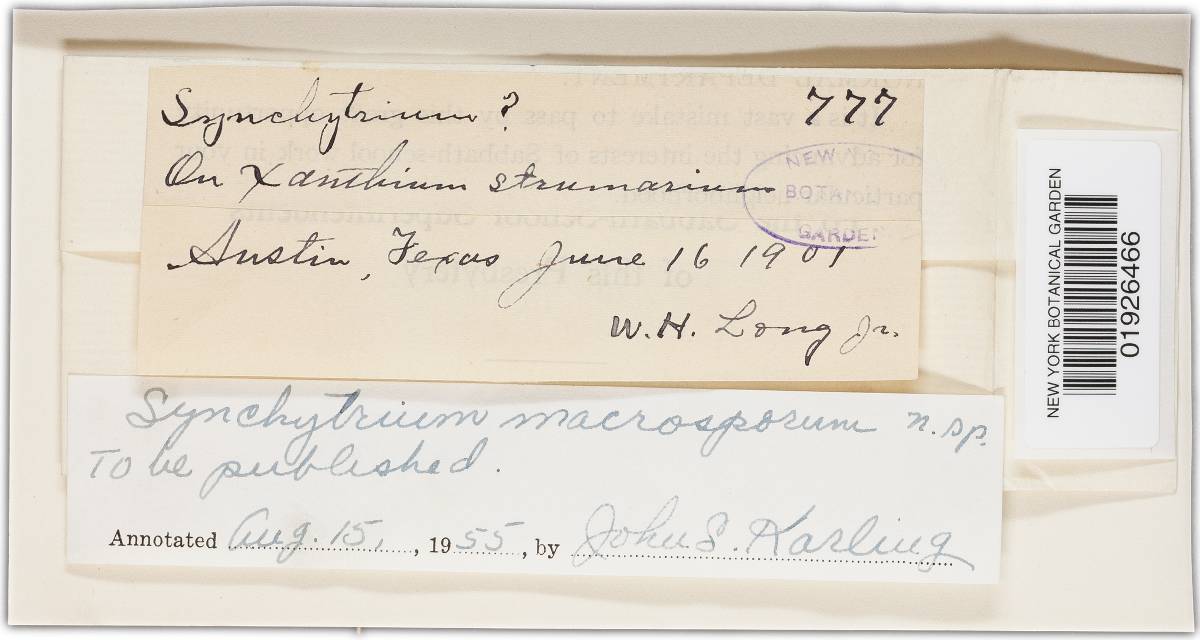 Synchytrium? 777
On Xanthium strumarium
NEW Y
BOTA
GARDEN
Austin, Texas June 16 1901
W.H. Long Jr.
Synchytrium macrosporum n.sp.
To be published.
Annotated Aug. 15, 1955, by John S. Karling
NEW YORK BOTANICAL GARDEN
01926466